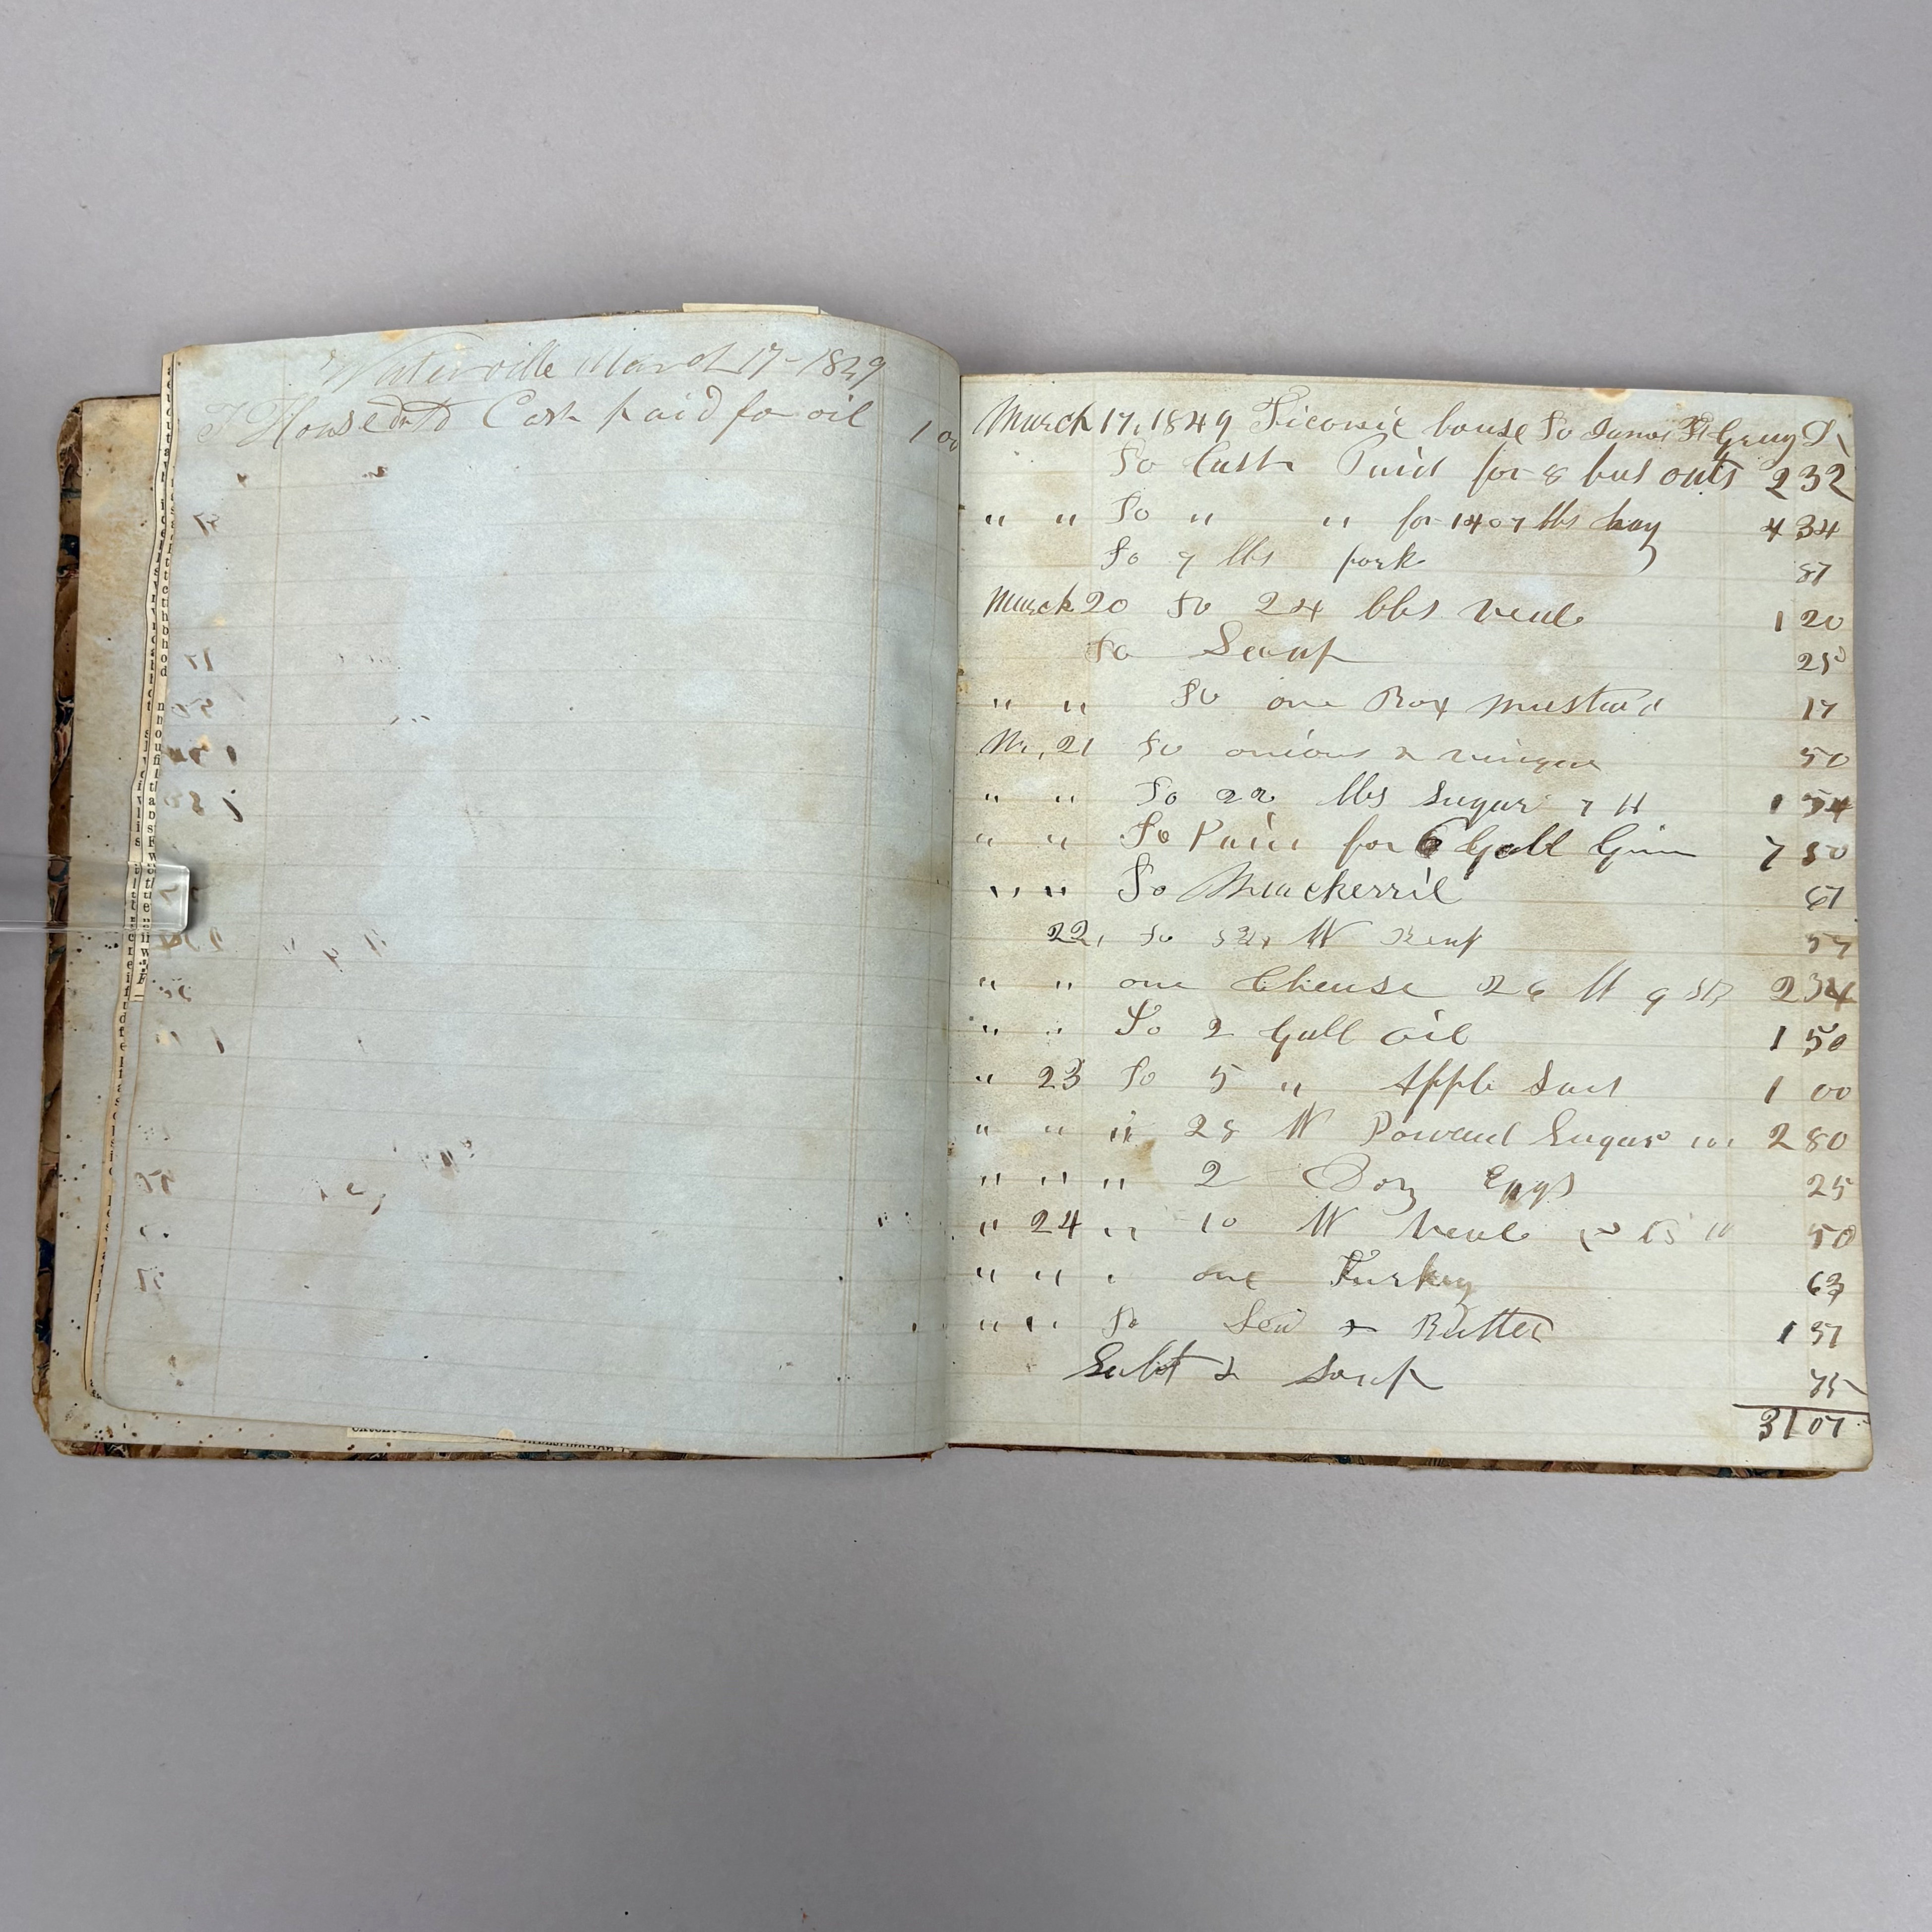 Waterville March 17 - 1849
T House Cash paid for oil 1 00
March 17, 1849 Ticonic house To James Gray Dr
To Cash Paid for 8 bus oats 2 32
" " To " " for 1407 lbs hay 4 34
To 9 lbs pork 87
March 20 To 24 lbs veal 1 20
To Soap 25
" " To one Box mustard 17
M, 21 To onions & vinigar 50
" " To 22 lbs Sugar 7 1 54
" " To Paid for 6 Gall Gin 7 50
" " To Mackerril 67
22, To
" " one Chease 26 9 2 34
" " To 2 Gall oil 1 50
" 23 To 5 " Apple Sauc 1 00
" " " 28 Powderd Sugar 10 2 80
" " " 2 Doz Eggs 25
" 24 " 10 Veal 50
" " " one Turkey 63
" " To & Butter 1 37
Salt & Soap 75
31 07